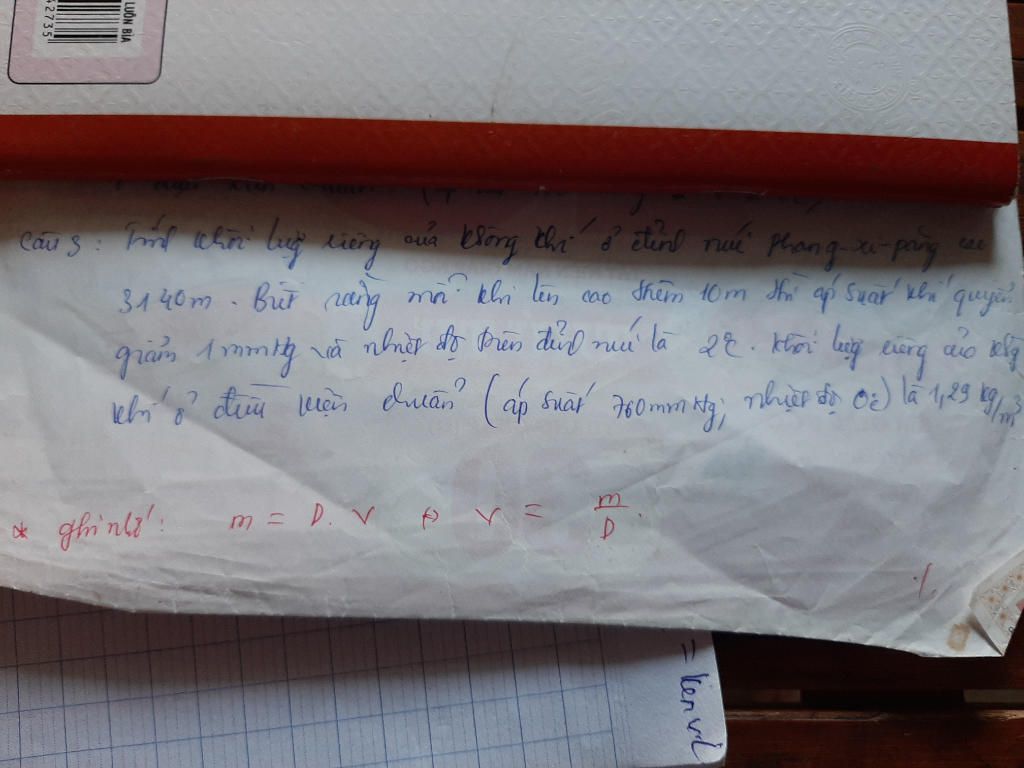 42735
LUÔN BÌA
Câu 3: Tính khối lượg riêng của không khí ở đỉnh núi phang-xi-păng cao
3140m. Biết rằng mỗi khi lên cao thêm 10m thì áp suất khí quyển
giảm 1mmHg và nhiệt độ trên đỉnh núi là 2°C. Khối lượg riêng của không
khí ở điều kiện chuẩn (áp suất 760mmHg, nhiệt độ 0°C) là 1,29 kg/m³
* ghi nhớ: m = D. V ⇔ V = m/D.
1.
=